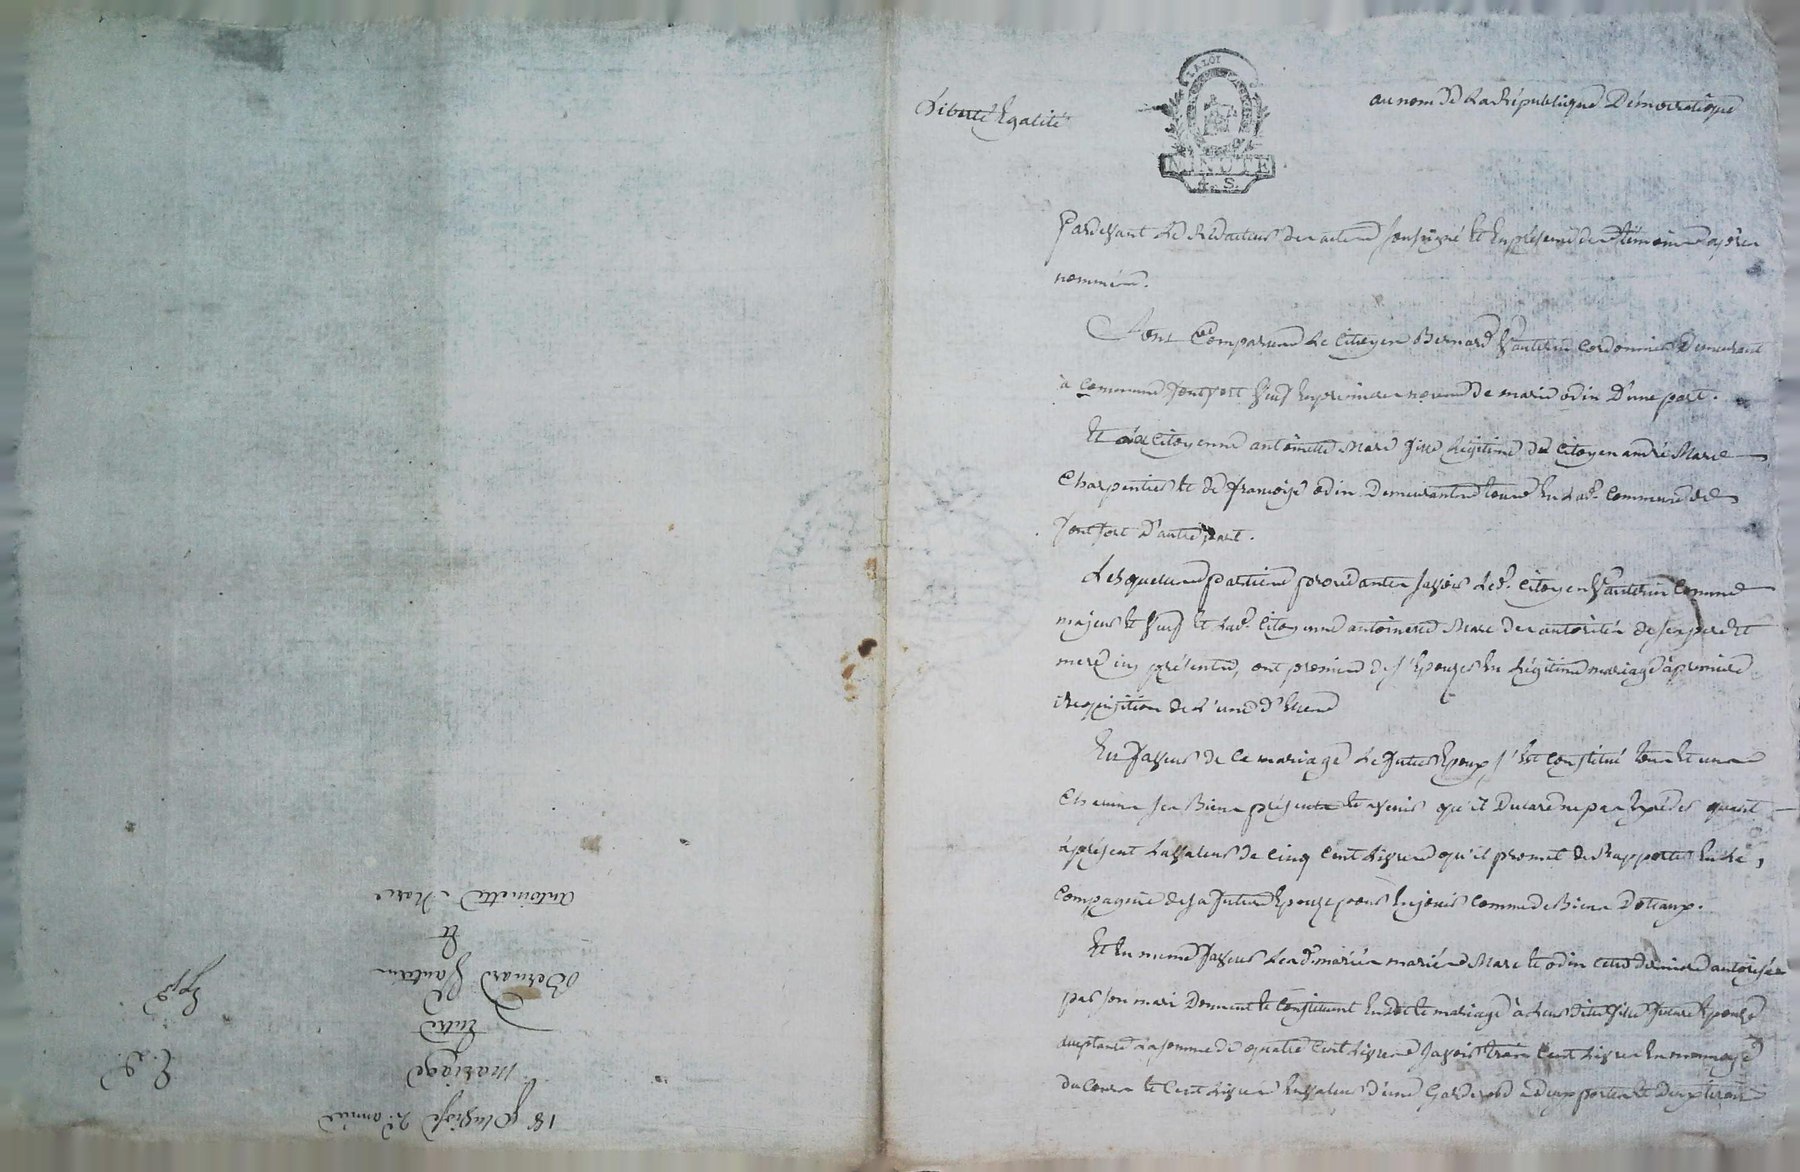 Liberté Egalité
LA LOI
MINUTE
4. S.
au nom de La République Démocratique
Pardevant Le Rédacteur des actes soussigné et En présence des témoins après
nommés.
Sont Comparus Le Citoyen Bernard Vauterin cordonnier Demeurant
à commune fontfort Veuf En premieres noces de marie odin D'une part.
Et La Citoyenne antoinette Mare fille Légitime du Citoyen andré Mare
Charpentier et de françoise odin Demeurants tous En Lad. commune de
fontfort D'autre part.
Lesquelles parties procédantes savoir Led. Citoyen Vauterin comme
majeur et Veuf et Lad. Citoyenne antoinette Mare des autorités de ses pere et
mere icy présents, ont promis de s'Epouser En Légitime mariage à premiere
Requisition de L'une D'Elles
En faveur de ce mariage Le futur Epoux s'Est constitué tous et uns
Chacuns ses Biens présents et avenir qu'il Declare ne pas Exceder quant
àprésent La valeur de cinq Cent Livres qu'il promet de Rapporter En La
Compagnie de sa future Epouse pour En jouir comme de Biens Dotaux.
Et En meme faveur Lesd. mariés Mare et odin cette derniere autorisée
par son mari Donnent et constituent En dot et mariage à Leur dite fille future Epouse
acceptante La somme de quatre Cent Livres savoir trois Cent Livres En monnoye
du Cours et Cent Livres En valeur d'une Garderobe à deux portes et deux tiroirs
18 pluviose 2e année
mariage
Entre
Bernard Vauterin
Et
antoinette Mare
Exp.
C. P.